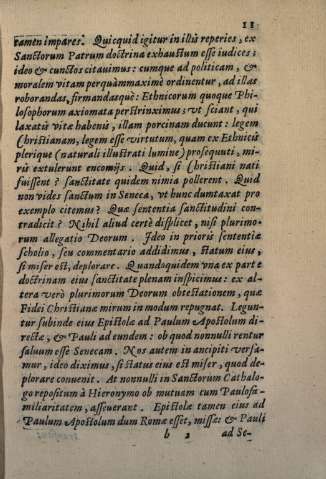 11
tamen impares. Quicquid igitur in illũ reperies, ex
Sanctorum Patrum doctrina exhaustum esse iudices:
ideo & cunctos citauimus: cumque ad politicam, &
moralem vitam perquàm maximè ordinentur, ad illas
roborandas, firmandasquè: Ethnicorum quoque Phi-
losophorum axiomata perstrinximus; vt sciant, qui
laxatis vitæ habenis, illam porcinam ducunt: legem
Christianam, legem esse virtutum, quam ex Ethnicis
plerique (naturali illustrati lumine) prosequuti, mi-
ris extulerunt encomijs. Quid, si Christiani nati
fuissent? sanctitate quidem nimia pollerent. Quid
non vides sanctum in Seneca, vt hunc dumtaxat pro
exemplo citemus? Quæ sententia sanctitudini con-
tradicit? Nihil aliud certè displicet, nisi plurimo-
rum allegatio Deorum. Ideo in prioris sententiæ
scholio, seu commentario addidimus, statum eius,
si miser est, deplorare. Quandoquidem vna ex parte
doctrinam eius sanctitate plenam inspicimus: ex al-
tera verò plurimorum Deorum obtestationem, quæ
Fidei Christianæ mirum in modum repugnat. Legun-
tur subinde eius Epistolæ ad Paulum Apostolum di-
rectæ, & Pauli ad eundem: ob quod nonnulli rentur
saluum esse Senecam. Nos autem in ancipiti versa-
mur, ideo diximus, si status eius est miser, quod de-
plorare conuenit. At nonnulli in Sanctorum Cathalo-
go repositum à Hieronymo ob mutuam cum Paulo fa-
miliaritatem, asseuerant. Epistolæ tamen eius ad
Paulum Apostolum dum Romæ esset, missæ: & Pauli
b 2 ad Se-